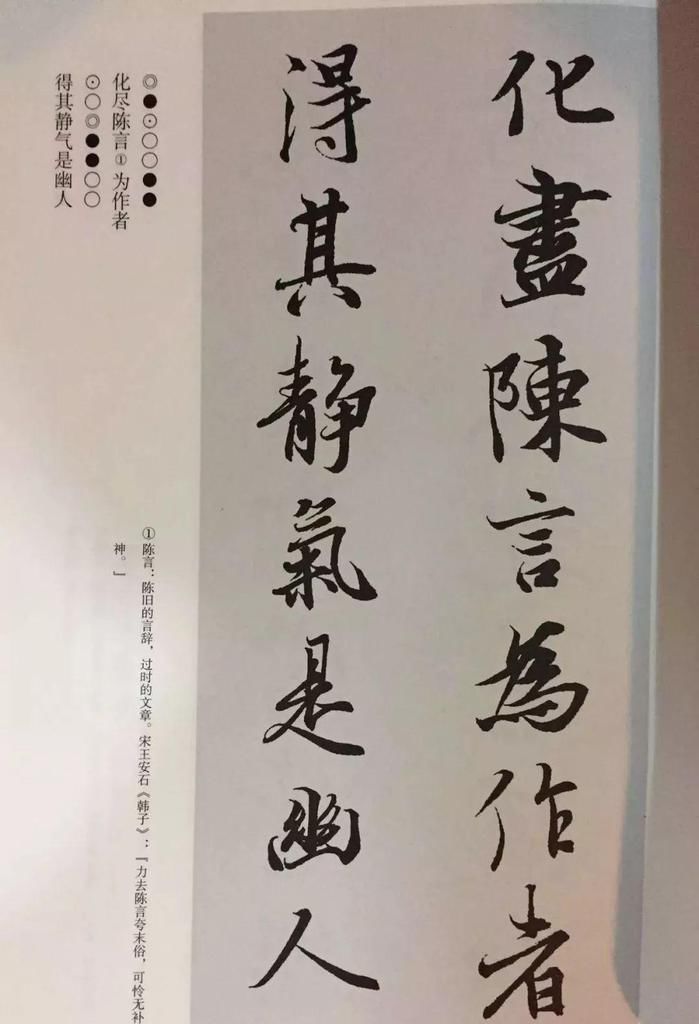 化盡陳言為作者
得其静氣是幽人
◎●⊙○○●●
化尽陈言①为作者
⊙○◎●●○○
得其静气是幽人
①陈言：陈旧的言辞，过时的文章。宋王安石《韩子》：「力去陈言夸末俗，可怜无补
神。」